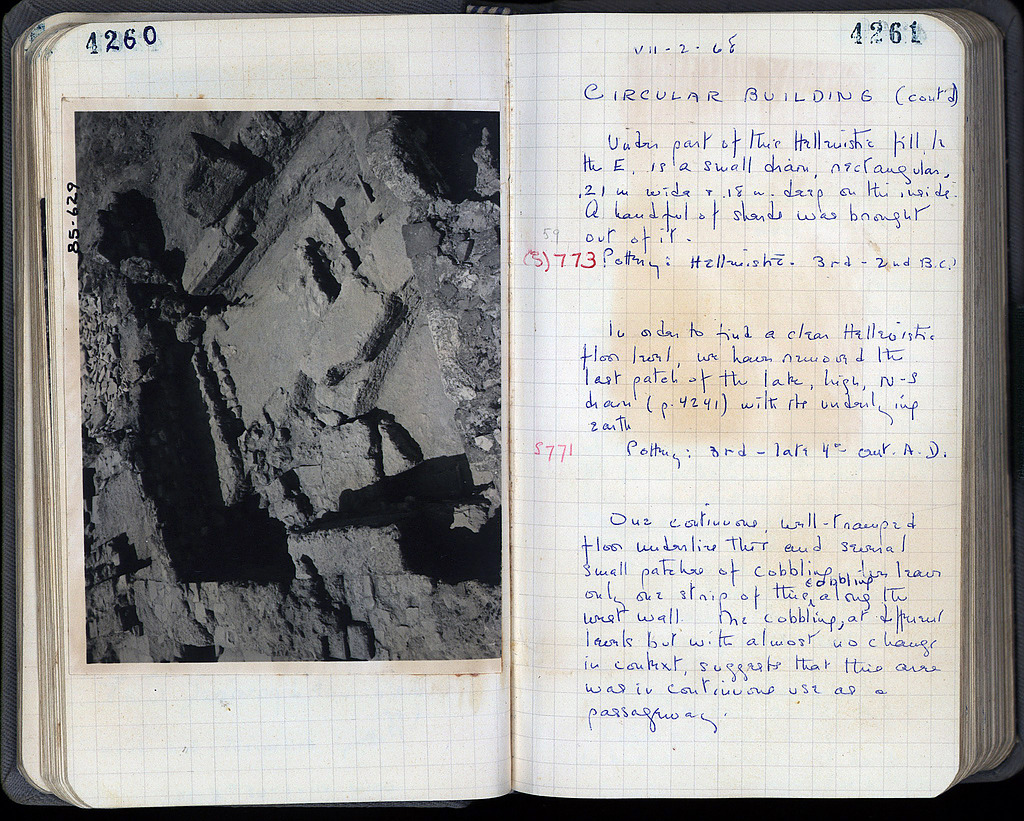 4260
85-629
4261
VII-2-68
CIRCULAR BUILDING (cont'd)
Under part of this Hellenistic fill to
the E. is a small drain, rectangular,
.21 m wide & .18 m. deep on the inside.
A handful of sherds was brought
out of it.
59
(S)773 Pottery: Hellenistic. 3rd - 2nd B.C.
In order to find a clear Hellenistic
floor level, we have removed the
last patch of the late, high, N-S
drain (p. 4241) with its underlying
earth
S771 Pottery: 3rd - late 4th cent. A.D.
One continuous, well-tramped
floor underlies this and several
small patches of cobbling,
only one strip of this cobbling along the
west wall. The cobbling, at different
levels but with almost no change
in context, suggests that this area
was in continuous use as a
passageway.